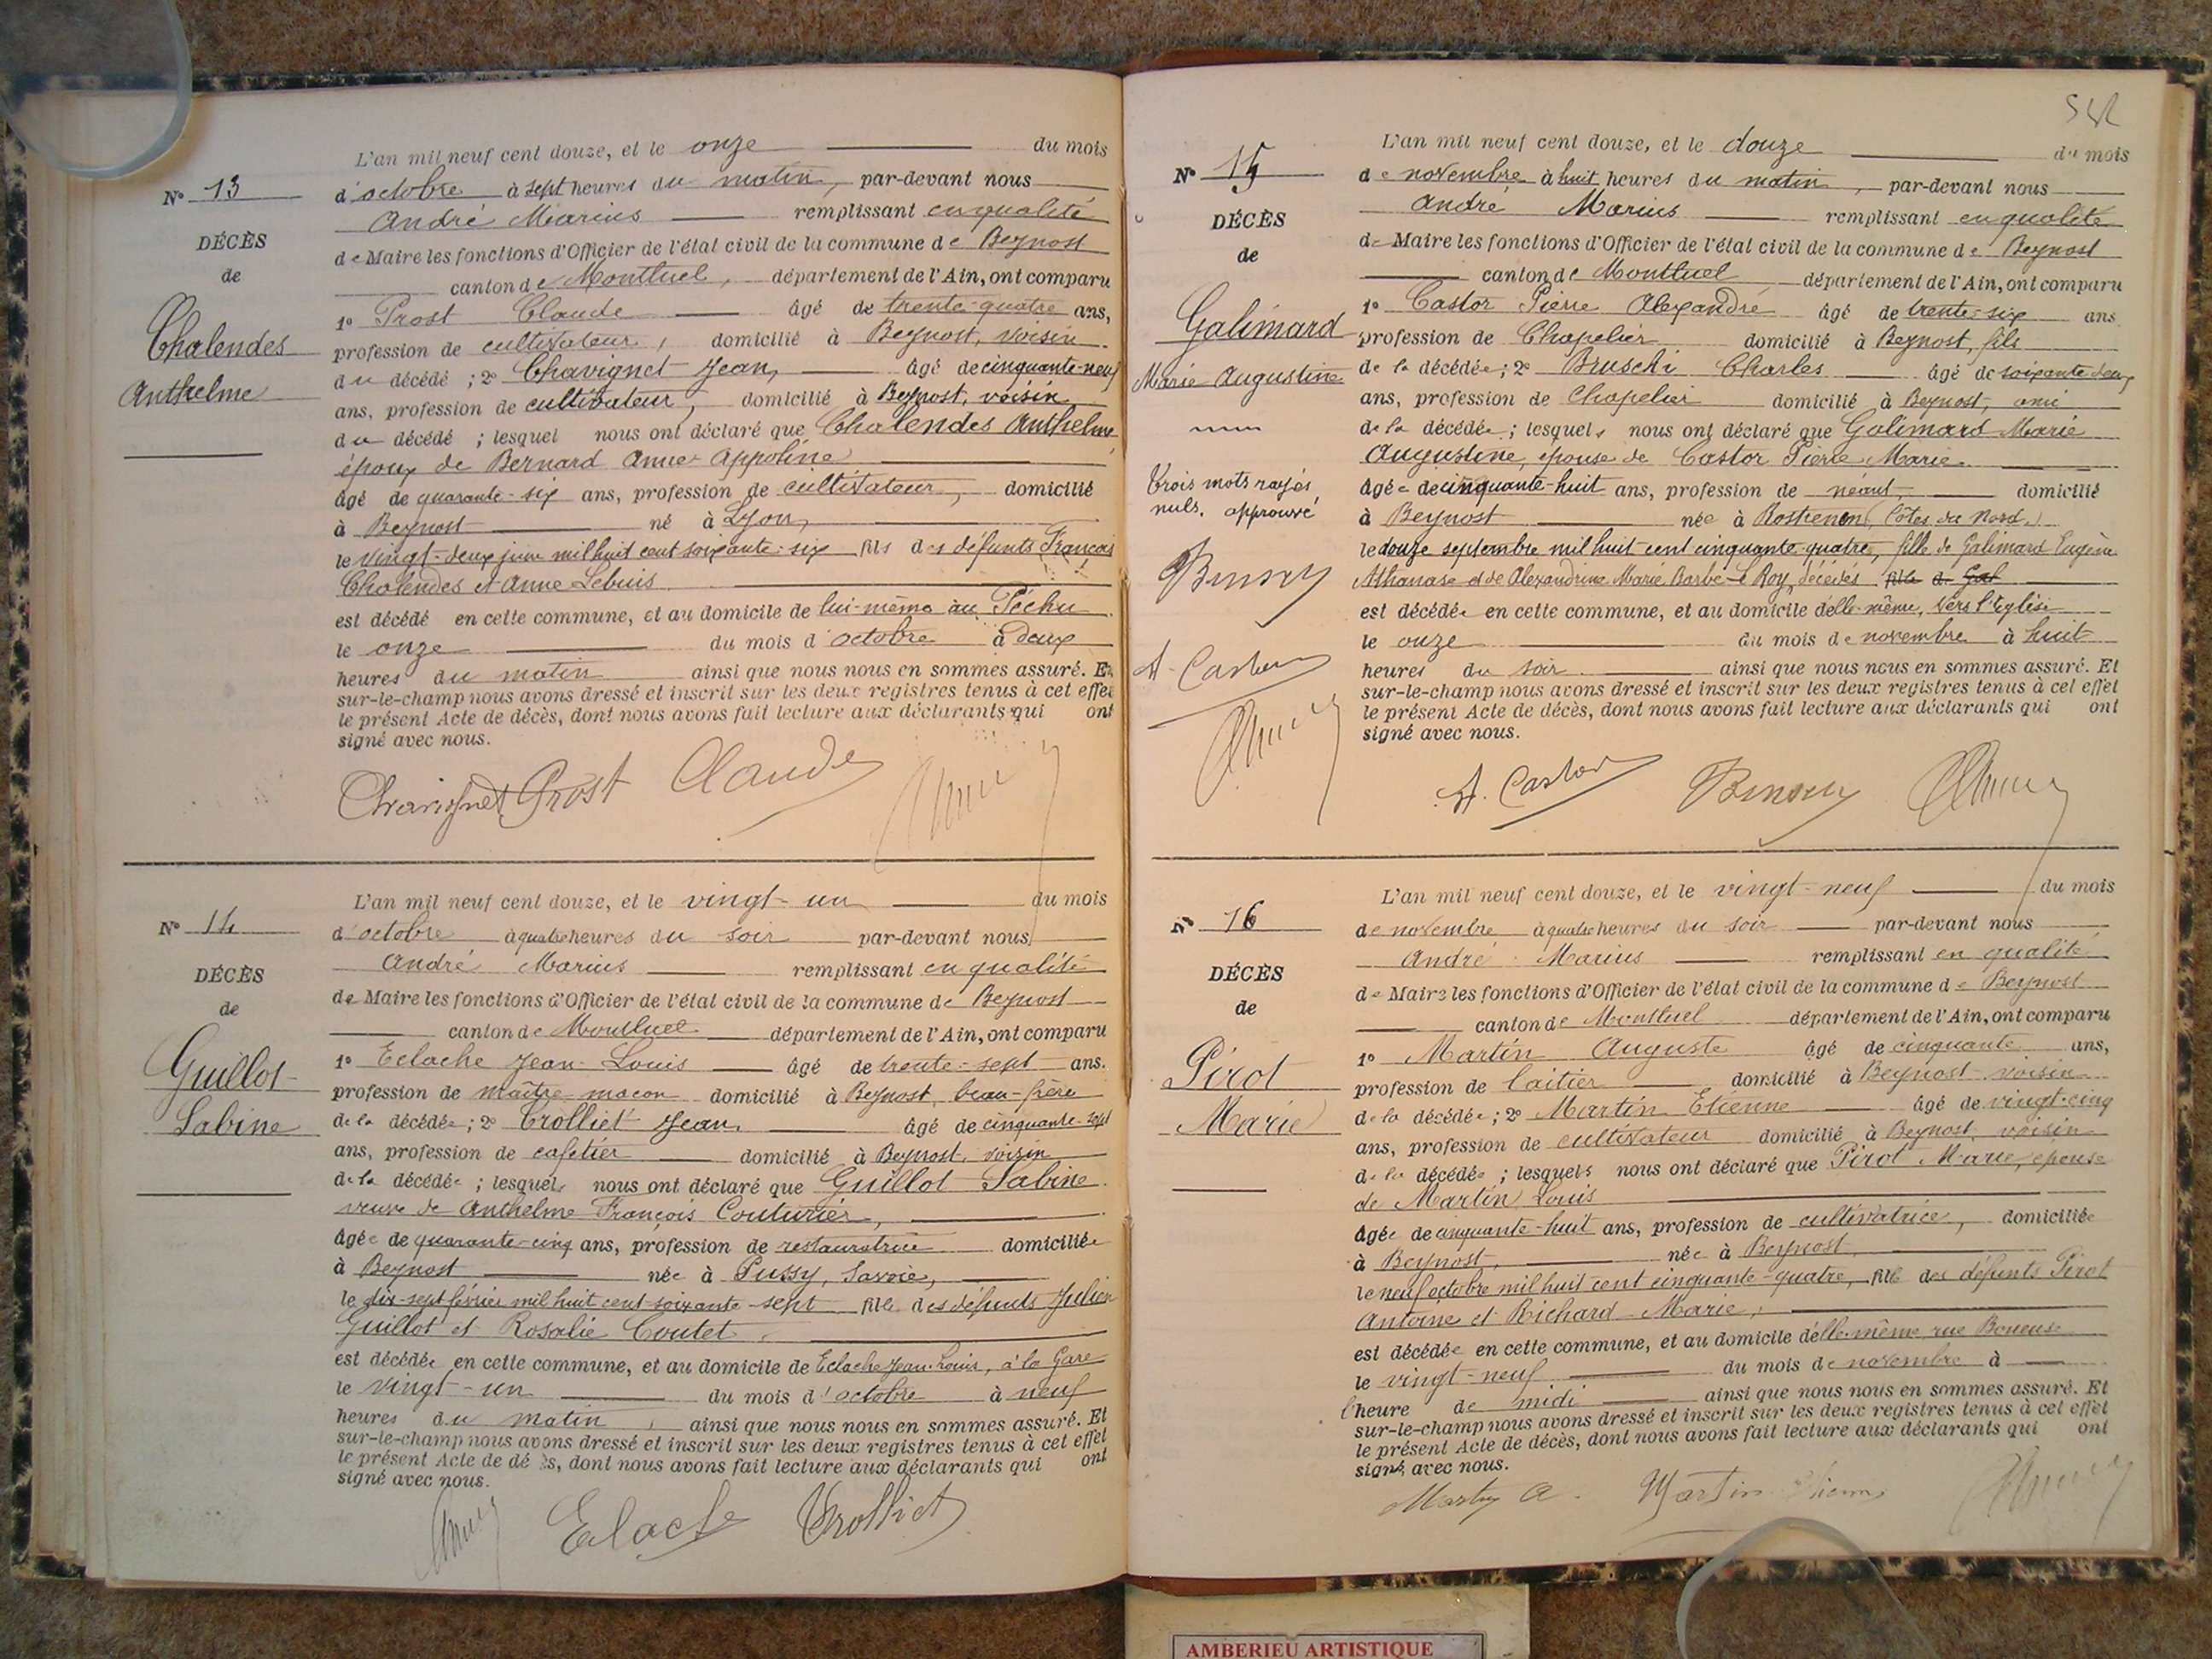 L'an mil neuf cent douze, et le onze du mois
N° 13
d'octobre à sept heures du matin, par-devant nous
André Marius remplissant en qualité
DÉCÈS
de Maire les fonctions d'Officier de l'état civil de la commune de Beynost
de
canton de Montluel, département de l'Ain, ont comparu
1° Prost Claude âgé de trente-quatre ans,
Chalendes
profession de cultivateur, domicilié à Beynost, voisin
du décédé ; 2° Chavignet Jean, âgé de cinquante-neuf
Anthelme
ans, profession de cultivateur, domicilié à Beynost, voisin
du décédé ; lesquel nous ont déclaré que Chalendes Anthelme
époux de Bernard Anne Appoline
âgé de quarante-six ans, profession de cultivateur, domicilié
à Beynost né à Lyon,
le vingt-deux juin mil huit cent soixante-six fils des défunts François
Chalendes et Anne Lebuis
est décédé en cette commune, et au domicile de lui-même au Péchu
le onze du mois d'octobre à deux
heures du matin ainsi que nous nous en sommes assuré. Et
sur-le-champ nous avons dressé et inscrit sur les deux registres tenus à cet effet
le présent Acte de décès, dont nous avons fait lecture aux déclarants qui ont
signé avec nous.
Chavignet Prost Claude
L'an mil neuf cent douze, et le vingt-un du mois
N° 14
d'octobre à quatre heures du soir par-devant nous
André Marius remplissant en qualité
DÉCÈS
de Maire les fonctions d'Officier de l'état civil de la commune de Beynost
de
canton de Montluel département de l'Ain, ont comparu
1° Eclache Jean-Louis âgé de trente-sept ans.
Guillot
profession de maître maçon domicilié à Beynost, beau-frère
Sabine
de la décédée ; 2° Trolliet Jean, âgé de cinquante-sept
ans, profession de cafetier domicilié à Beynost, voisin
de la décédée ; lesquels nous ont déclaré que Guillot Sabine
veuve de Anthelme François Couturier,
âgée de quarante-cinq ans, profession de restauratrice domiciliée
à Beynost née à Pussy, Savoie,
le dix-sept février mil huit cent soixante-sept fille des défunts Julien
Guillot et Rosalie Coutet.
est décédée en cette commune, et au domicile de Eclache Jean-Louis, à la Gare
le vingt-un du mois d'octobre à neuf
heures du matin, ainsi que nous nous en sommes assuré. Et
sur-le-champ nous avons dressé et inscrit sur les deux registres tenus à cet effet
le présent Acte de dé s, dont nous avons fait lecture aux déclarants qui ont
signé avec nous.
Eclache Trolliet
L'an mil neuf cent douze, et le douze du mois
N° 15
de novembre à huit heures du matin, par-devant nous
André Marius remplissant en qualité
DÉCÈS
de Maire les fonctions d'Officier de l'état civil de la commune de Beynost
de
canton de Montluel département de l'Ain, ont comparu
1° Castor Pierre Alexandre âgé de trente-six ans
Galimard
profession de Chapelier domicilié à Beynost, fils
Marie Augustine
de la décédée ; 2° Bruschi Charles âgé de soixante deux
ans, profession de Chapelier domicilié à Beynost, ami
de la décédée ; lesquels nous ont déclaré que Galimard Marie
Augustine, épouse de Castor Pierre Marie
Trois mots rayés
nuls, approuvé
âgée de cinquante-huit ans, profession de néant, domicilié
à Beynost née à Rostrenen (Côtes du Nord.)
le douze septembre mil huit cent cinquante-quatre, fille de Galimard Eugène
Athanase et de Alexandrine Marie Barbe Le Roy, décédés fille de Gal
est décédée en cette commune, et au domicile d'elle-même, vers l'Eglise
A. Castor
le onze du mois de novembre à huit
heures du soir ainsi que nous nous en sommes assuré. Et
sur-le-champ nous avons dressé et inscrit sur les deux registres tenus à cet effet
le présent Acte de décès, dont nous avons fait lecture aux déclarants qui ont
signé avec nous.
A. Castor
L'an mil neuf cent douze, et le vingt-neuf du mois
N° 16
de novembre à quatre heures du soir par-devant nous
André Marius remplissant en qualité
DÉCÈS
de Maire les fonctions d'Officier de l'état civil de la commune de Beynost
de
canton de Montluel département de l'Ain, ont comparu
1° Martin Auguste âgé de cinquante ans,
Pirot
profession de laitier domicilié à Beynost voisin
Marie
de la décédée ; 2° Martin Etienne âgé de vingt-cinq
ans, profession de cultivateur domicilié à Beynost, voisin
de la décédée ; lesquels nous ont déclaré que Pirot Marie, épouse
de Martin Louis
âgée de cinquante-huit ans, profession de cultivatrice, domiciliée
à Beynost, née à Beynost
le neuf octobre mil huit cent cinquante-quatre, fille des défunts Pirot
Antoine et Richard Marie,
est décédée en cette commune, et au domicile d'elle-même, rue Boueuse
le vingt-neuf du mois de novembre à
l'heure de midi ainsi que nous nous en sommes assuré. Et
sur-le-champ nous avons dressé et inscrit sur les deux registres tenus à cet effet
le présent Acte de décès, dont nous avons fait lecture aux déclarants qui ont
signé avec nous.
Martin A. Martin Etienne
AMBERIEU ARTISTIQUE